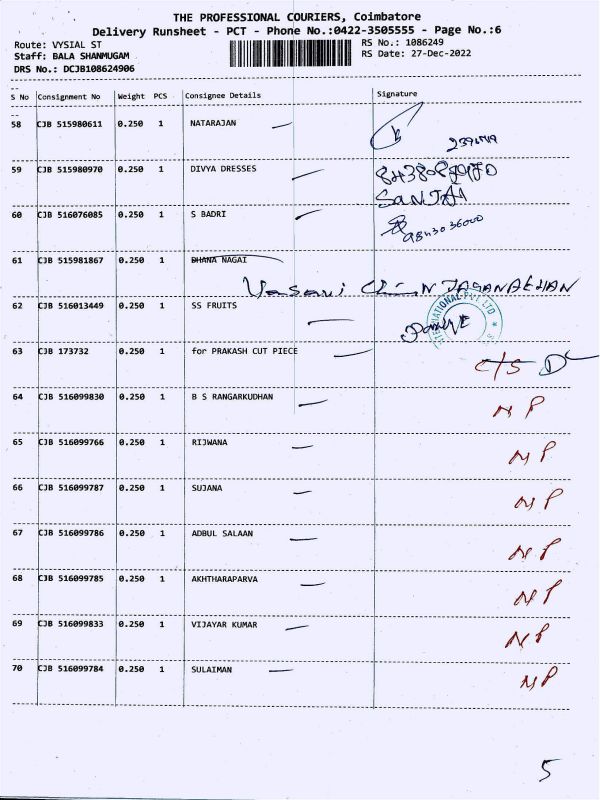 THE PROFESSIONAL COURIERS, Coimbatore
Delivery Runsheet - PCT - Phone No.:0422-3505555 - Page No.:6
Route: VYSIAL ST RS No.: 1086249
Staff: BALA SHANMUGAM RS Date: 27-Dec-2022
DRS No.: DCJB108624906
S No Consignment No Weight PCS Consignee Details Signature
58 CJB 515980611 0.250 1 NATARAJAN
59 CJB 515980970 0.250 1 DIVYA DRESSES
SANJAI
60 CJB 516076085 0.250 1 S BADRI
9843036000
61 CJB 515981867 0.250 1 DHANA NAGAI
62 CJB 516013449 0.250 1 SS FRUITS
63 CJB 173732 0.250 1 for PRAKASH CUT PIECE
C/S
64 CJB 516099830 0.250 1 B S RANGARKUDHAN NP
65 CJB 516099766 0.250 1 RIJWANA NP
66 CJB 516099787 0.250 1 SUJANA NP
67 CJB 516099786 0.250 1 ADBUL SALAAN NP
68 CJB 516099785 0.250 1 AKHTHARAPARVA NP
69 CJB 516099833 0.250 1 VIJAYAR KUMAR NP
70 CJB 516099784 0.250 1 SULAIMAN NP
5